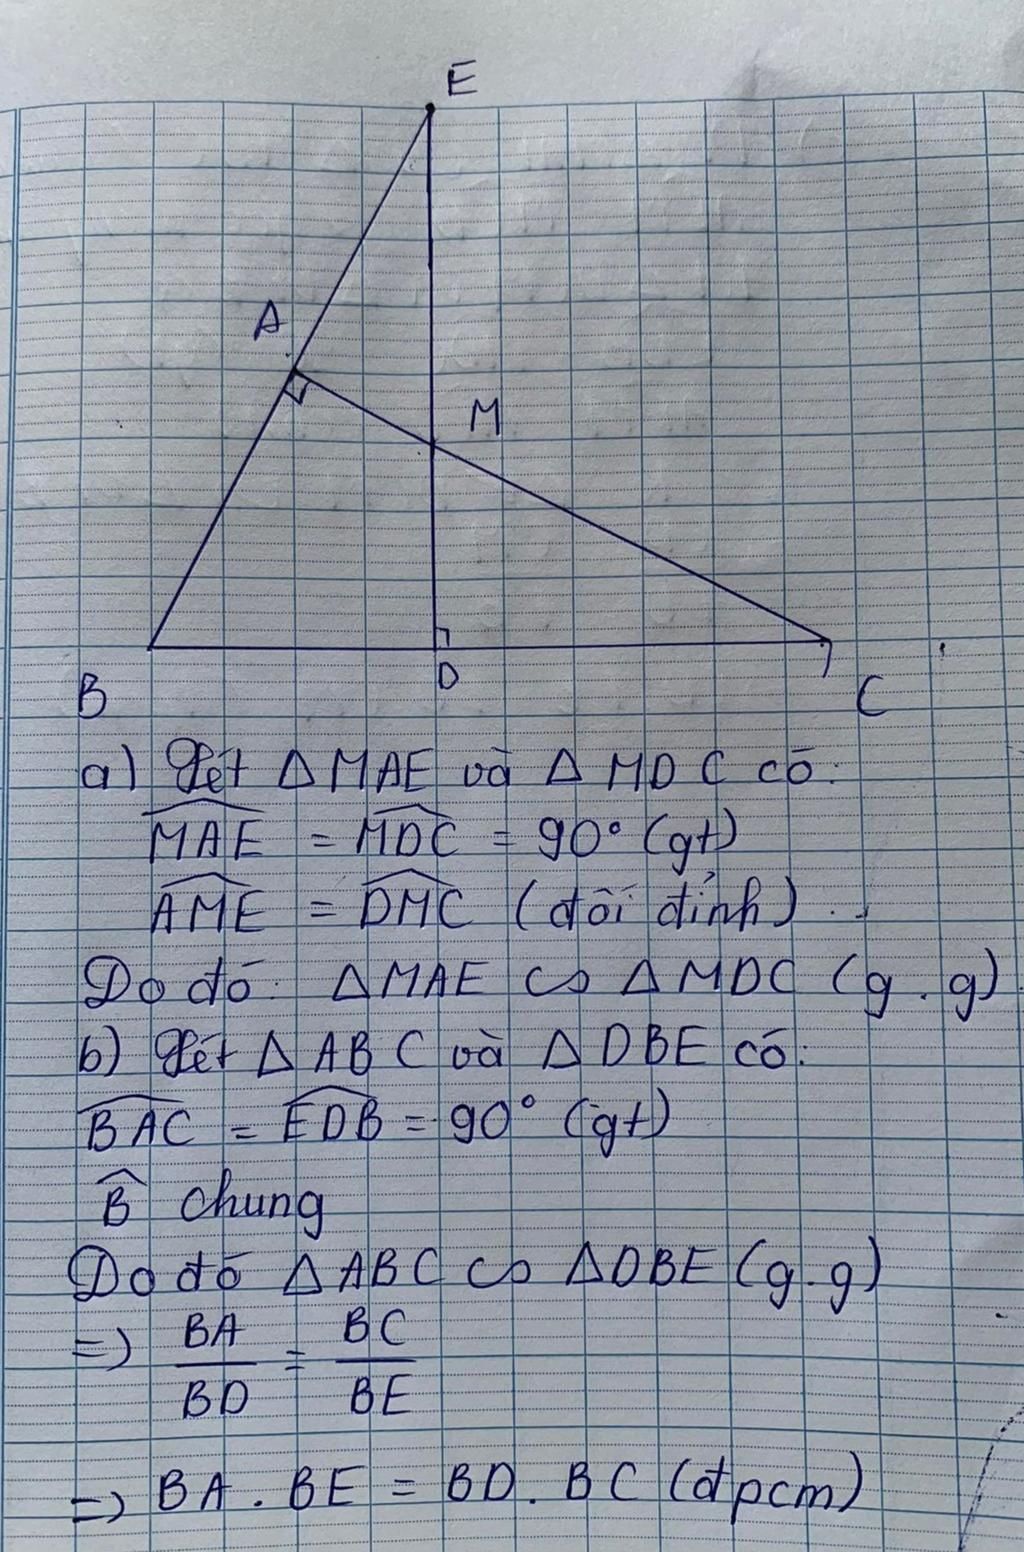 E
A
M
B
D
C
a) Xét Δ MAE và Δ MDC có:
$\widehat{MAE}$ = $\widehat{MDC}$ = 90° (gt)
$\widehat{AME}$ = $\widehat{DMC}$ (đối đỉnh)
Do đó: ΔMAE ∽ ΔMDC (g.g)
b) Xét Δ ABC và Δ DBE có:
$\widehat{BAC}$ = $\widehat{EDB}$ = 90° (gt)
$\widehat{B}$ chung
Do đó ΔABC ∽ ΔDBE (g.g)
=> $\frac{BA}{BD}$ = $\frac{BC}{BE}$
=> BA . BE = BD . BC (đpcm)